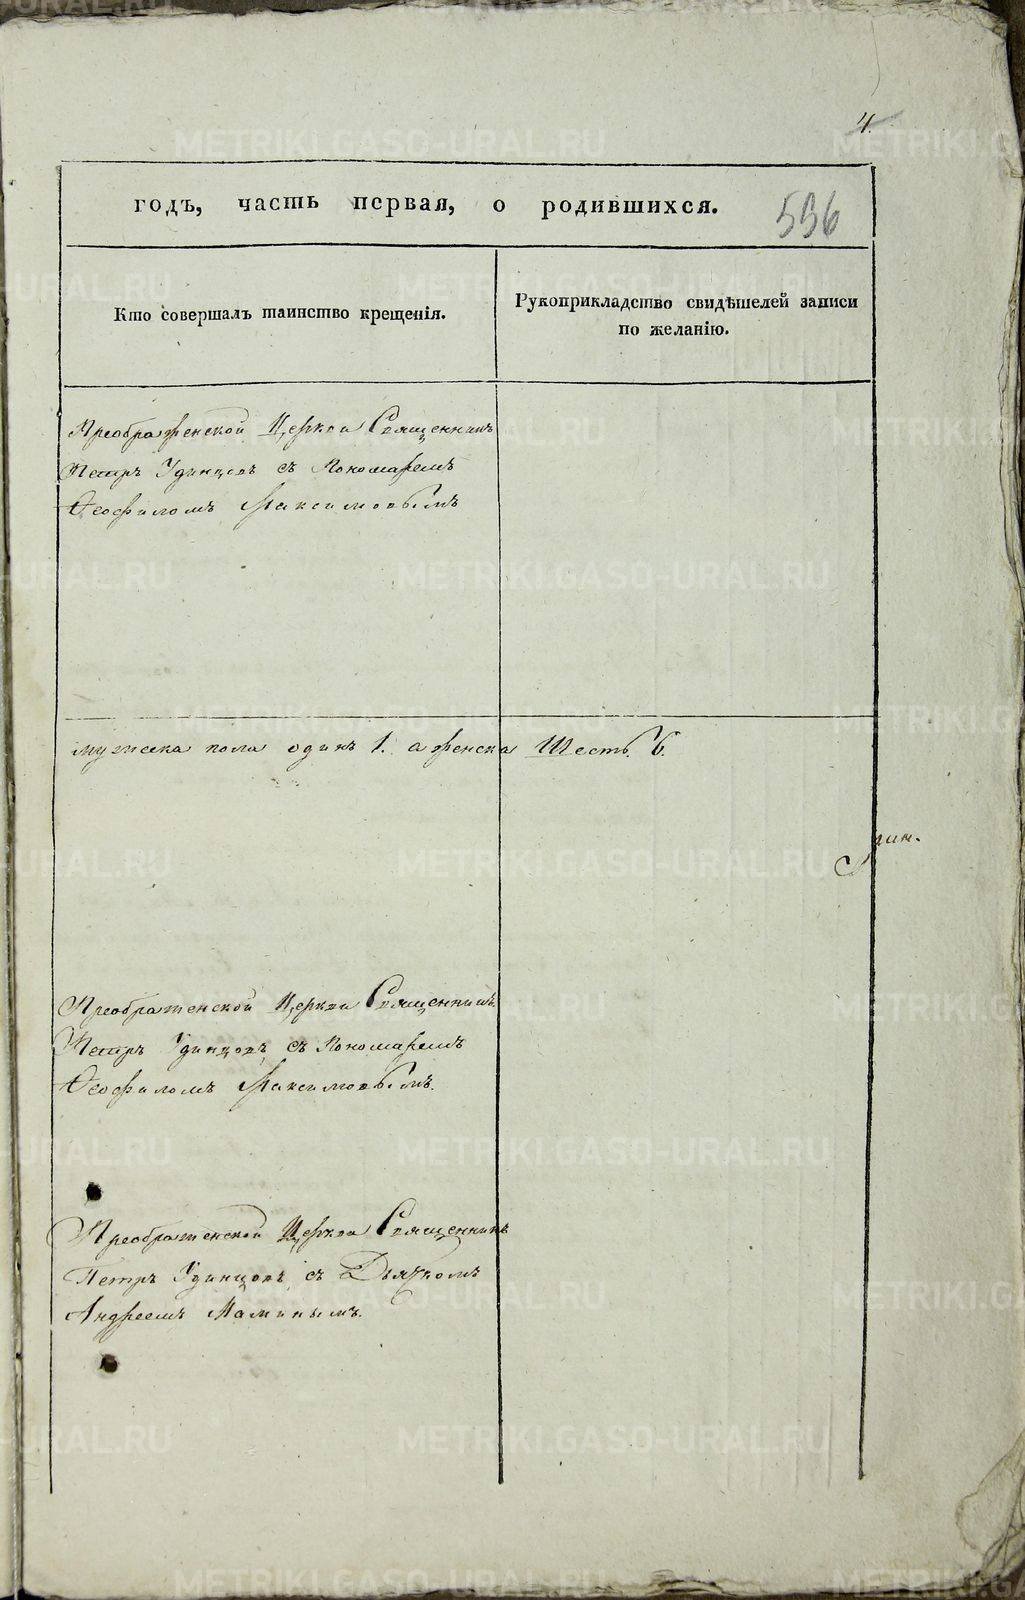 4.
годъ, часть первая, о родившихся.
596
Кто совершалъ таинство крещенія.
Рукоприкладство свидѣтелей записи
по желанію.
Преображенской Церкви Священникъ
Петръ Удинцовъ съ Пономаремъ
Ѳеофиломъ Максимовымъ
мужеска пола одинъ 1. а женска Шесть. 6.
Преображенской Церкви Священникъ
Петръ Удинцовъ съ Пономаремъ
Ѳеофиломъ Максимовымъ.
Преображенской Церкви Священникъ
Петръ Удинцовъ съ Дьячкомъ
Андреемъ Маминымъ.
METRIKI.GASO-URAL.RU